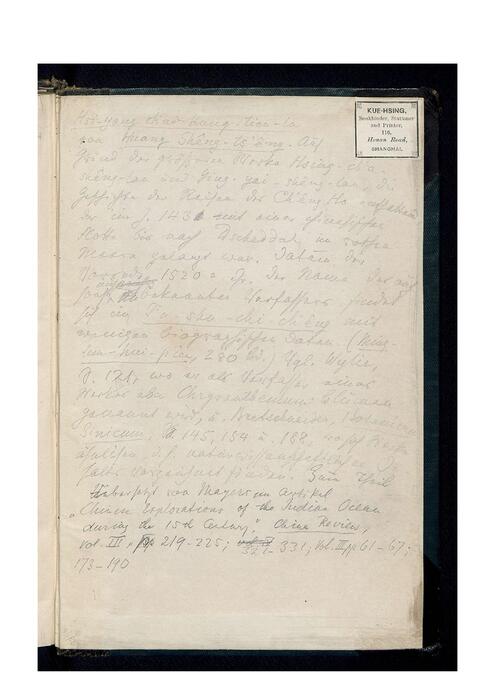 KUE-HSING,
Bookbinder, Stationer
and Printer,
116,
Honan Road,
SHANGHAI.
Hsi-yang chao-kung-tien-
von Huang Shêng-ts'êng. Auf
Grund der größeren Werke Hsing-ch'a-
shêng-lan und Ying-yai-shêng-lan, die
Geschichte der Reisen des Chêng Ho enthaltend
der im J. 143 mit einer chinesischen
Flotte bis nach Dscheddah im rothen
Meere gelangt war. Datum der
Vorrede, 1520 a. Der Name des
bekannten Verfassers findet
sich im T'u-shu-chi-ch'êng mit
wenigen biographischen Daten. (Ming-
lun-hui-pien, 280 ). Vgl. Wylie,
p. 121, wo er als Verfasser eines
Werkes über Chrysanthemum
genannt wird, u. Bretschneider, Botanicon
Sinicum, 145, 154 u. 188, wo
d. h. naturwissenschaftlichen
Zum Theil
Übersetzt von Mayers im Artikel
„Chinese Explorations of the Indian Ocean
during the 15th Century". China Review,
vol. III, pp 219-225; 321-331; Vol. III pp 61-67;
173-190